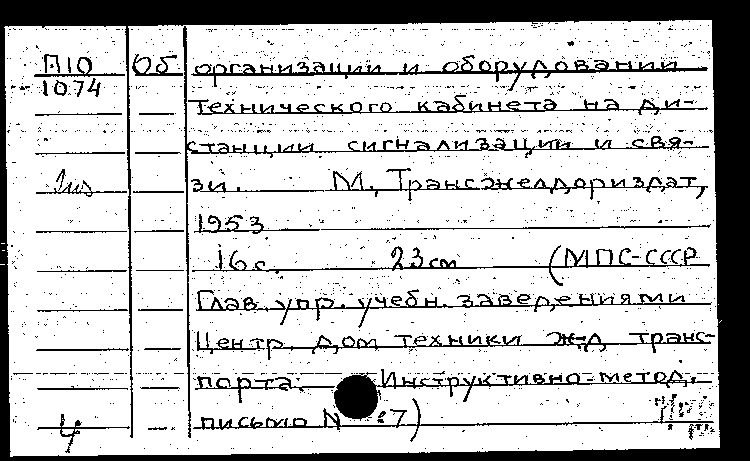 П10 Об организации и оборудовании
1074
технического кабинета на ди-
станции сигнализации и свя-
зи. М., Трансжелдориздат,
1953
16 с. 23 см (МПС-СССР
Глав. упр. учебн. заведениями
Центр. дом техники ж-д транс-
порта. Инструктивно-метод.
письмо N 7)
4